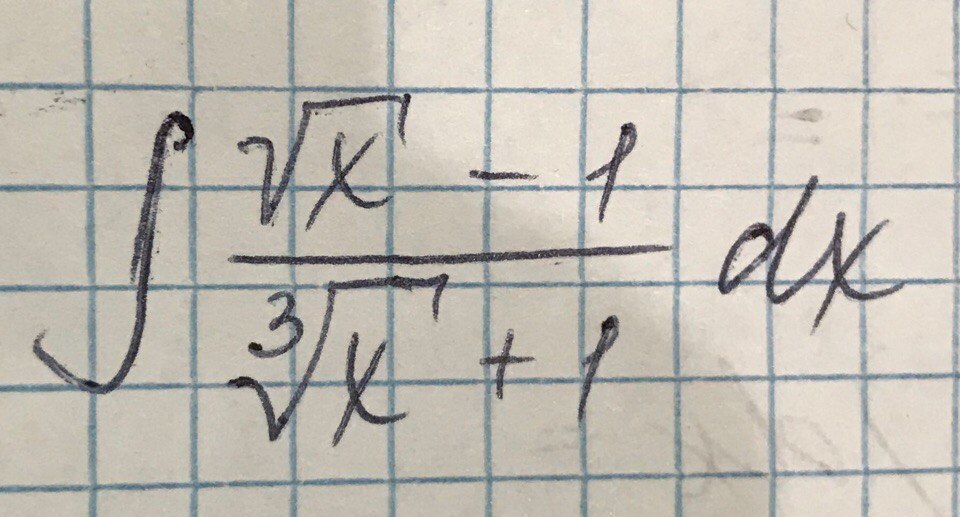 ∫ (√x − 1)/(∛x + 1) dx